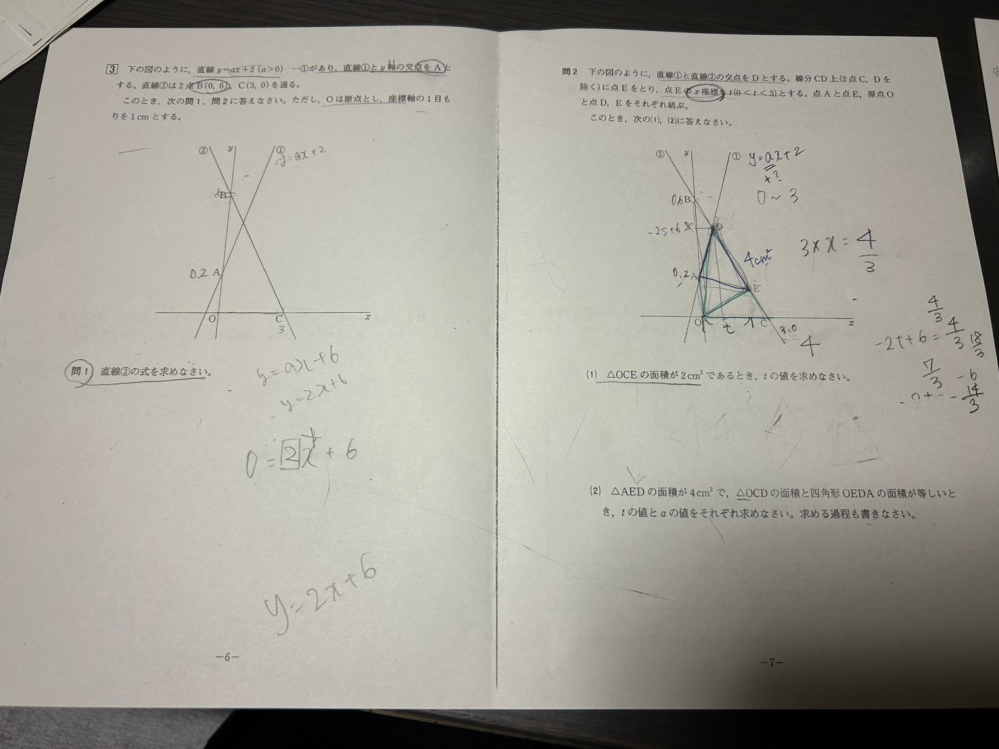 3 下の図のように，直線 y=ax+2 (a>0) …①があり，直線①と y 軸の交点を A と
する。直線②は2点 B(0, 6)，C(3, 0) を通る。
このとき，次の問1，問2に答えなさい。ただし，O は原点とし，座標軸の1目も
りを1cmとする。
② y ①
y=ax+2
B
0.2 A
O C x
3
問1 直線②の式を求めなさい。
y=ax+6
y=2x+6
0=2x+6
y=2x+6
-6-
問2 下の図のように，直線①と直線②の交点を D とする。線分 CD 上(2点 C，D を
除く)に点 E をとり，点 E の x 座標を t(0<t<3)とする。点 A と点 E，原点 O
と点 D，E をそれぞれ結ぶ。
このとき，次の(1)，(2)に答えなさい。
② y ①
y=ax+2
+?
0~3
0.6 B
D
4cm²
0.2 A
E
O t C x
3.0
4
3×x=4/3
4/3
-2t+6=4/3
18/3
7/3
-6
14/3
(1) △OCE の面積が 2cm² であるとき，t の値を求めなさい。
(2) △AED の面積が 4cm² で，△OCD の面積と四角形 OEDA の面積が等しいと
き，t の値と a の値をそれぞれ求めなさい。求める過程も書きなさい。
-7-